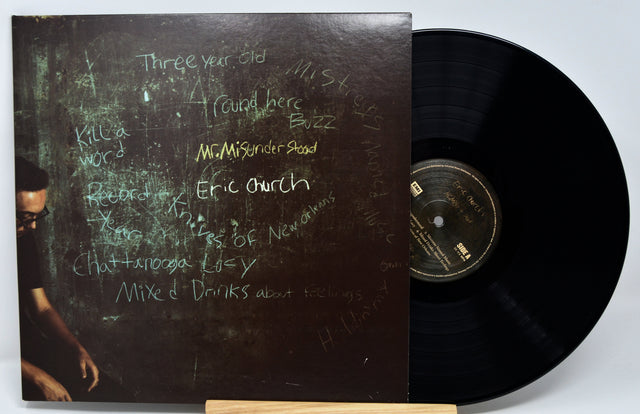 Three year old
Mistress Named Music
Round here
Buzz
Kill a
word
Mr. Misunderstood
Eric Church
Record
Year
Knives of New Orleans
Chattanooga Lucy
Mixed Drinks about feelings
Holdin' my
Eric Church
SIDE A